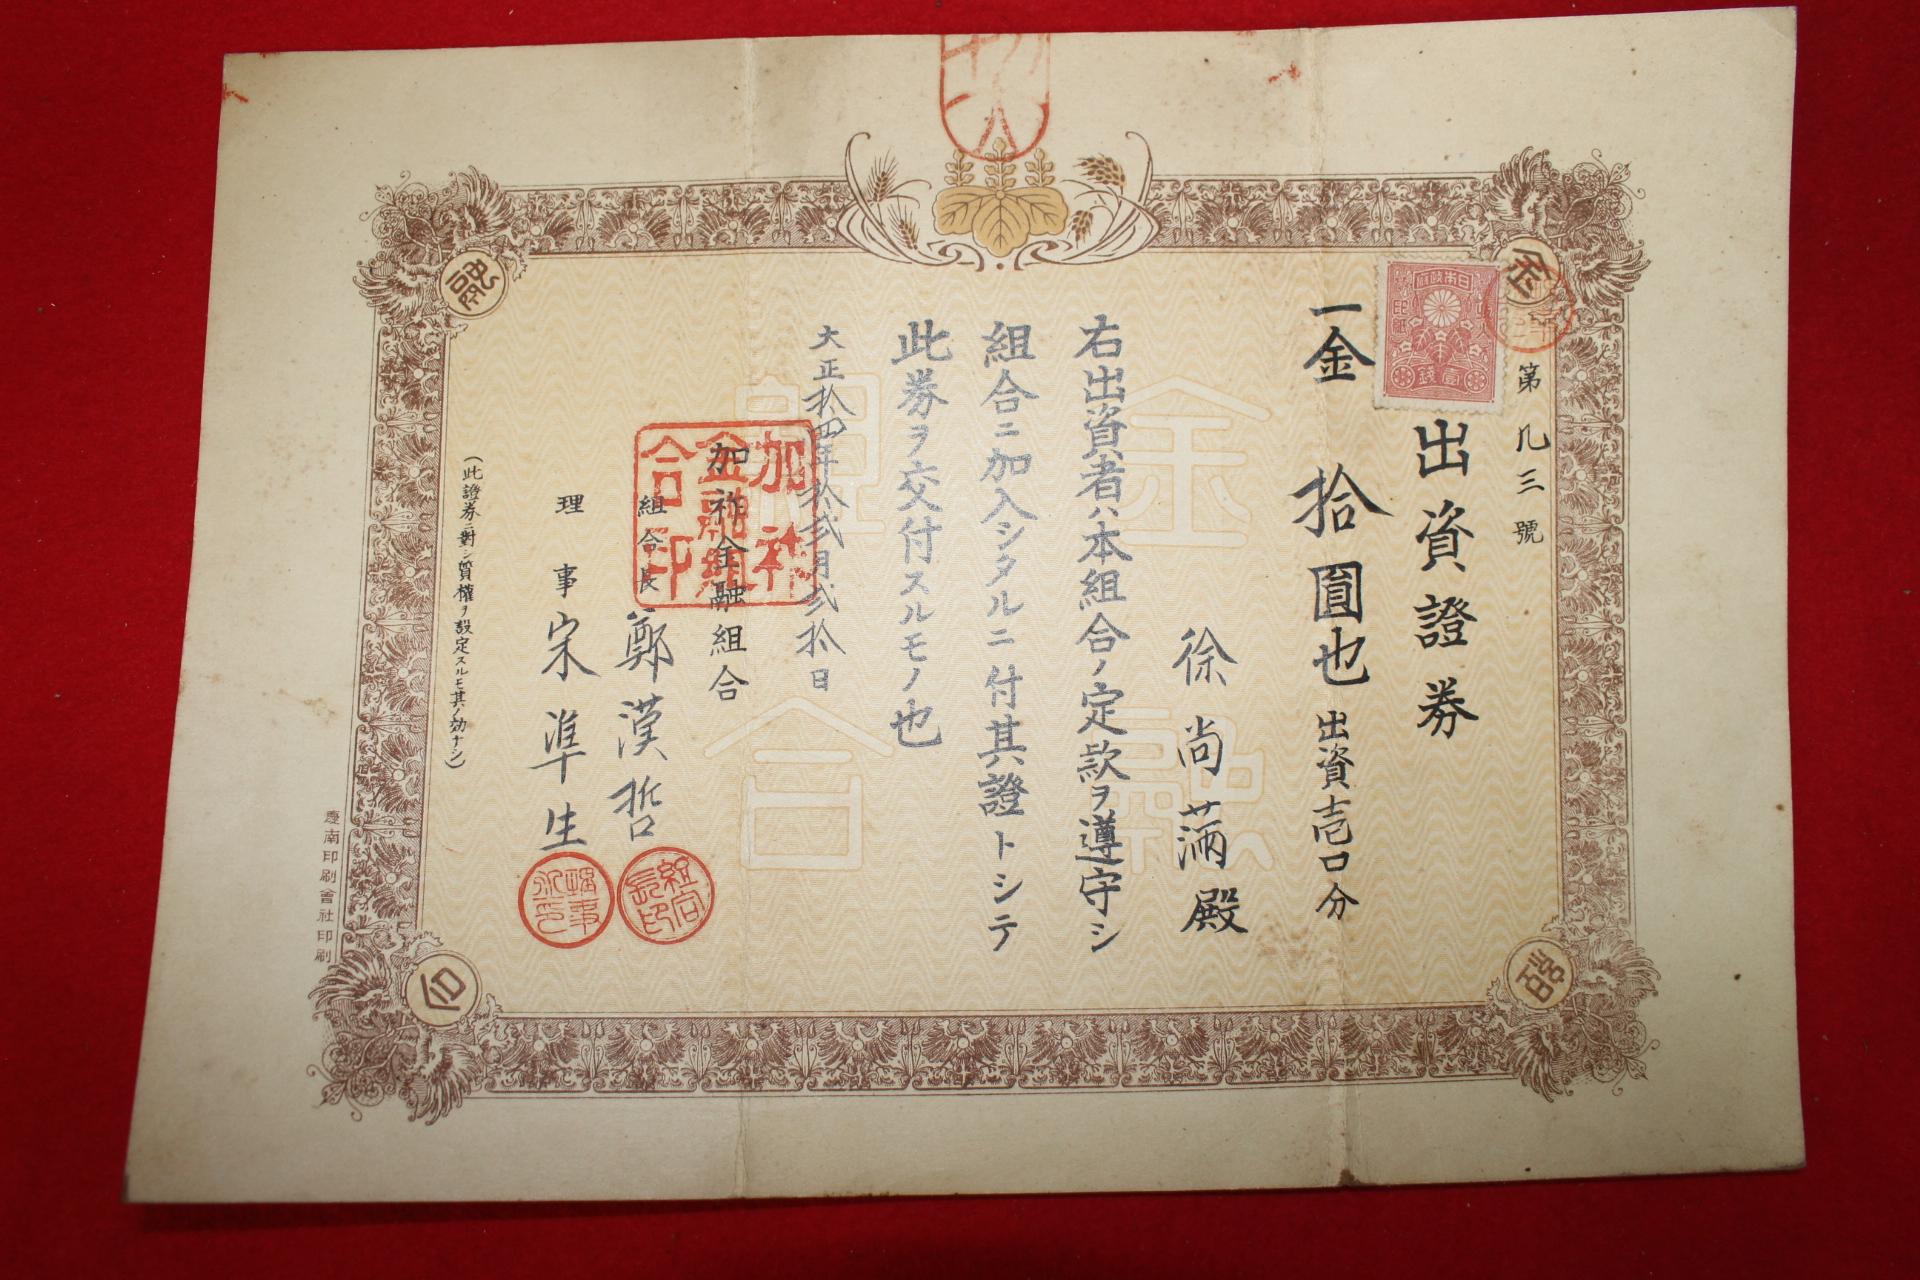 第九三號
出資證券
一金拾圓也 出資壱口分
徐尚滿殿
右出資者ハ本組合ノ定款ヲ遵守シ
組合ニ加入シタルニ付其證トシテ
此券ヲ交付スルモノ也
大正拾四年拾弐月弐拾日
加祚金融組合
組合長 鄭漢哲
理事 宋準生
(此證券ニ對シ質權ヲ設定スルモ其ノ効ナシ)
慶南印刷會社印刷
日本政府
印紙
壹錢
金
融
組
合
組合長印